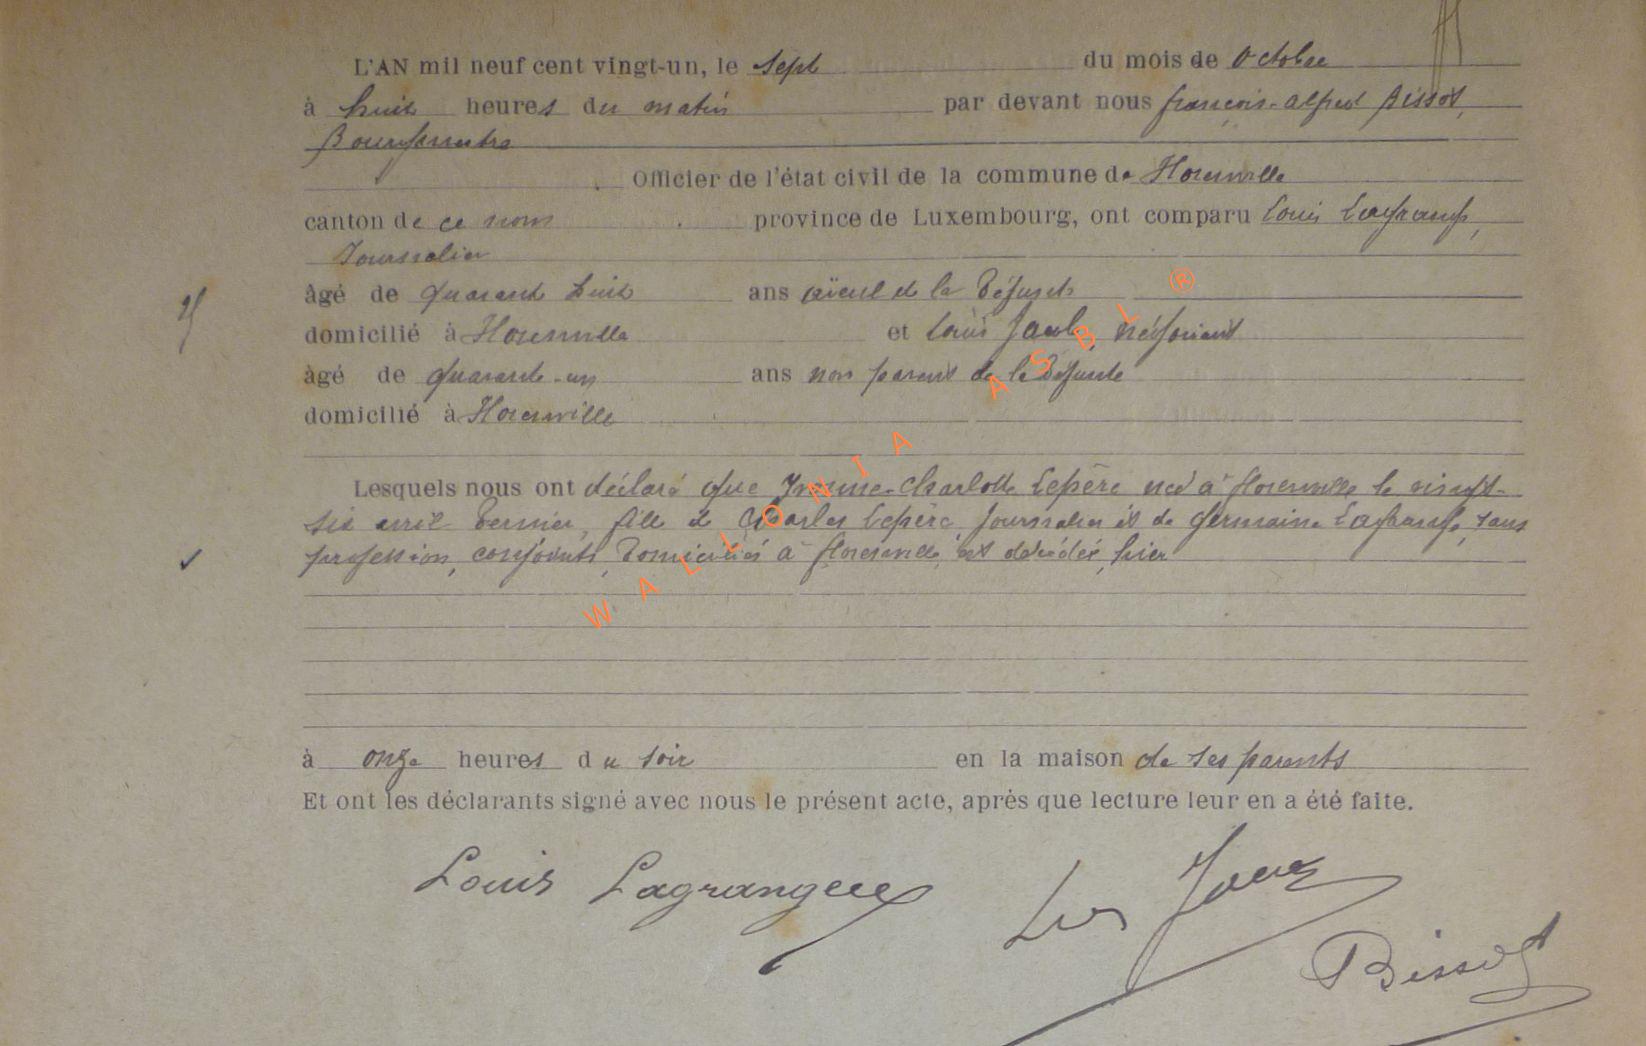 L'AN mil neuf cent vingt-un, le sept du mois de Octobre
à huit heures du matin par devant nous françois-alfred Bissot,
Bourgmestre
Officier de l'état civil de la commune de Florenville
canton de ce nom province de Luxembourg, ont comparu Louis Lagrange,
Journalier
âgé de quarante huit ans aïeul de la défunte
domicilié à Florenville et Louis négociant
âgé de quarante-un ans non parent de la défunte
domicilié à Florenville
Lesquels nous ont déclaré que Yvonne-Charlotte Lepère née à florenville le vingt-
six avril dernier, fille de Charles Lepère, journalier et de germaine Lagrange, sans
profession, conjoints, domiciliés à florenville, est décédée, hier
à onze heures du soir en la maison de ses parents
Et ont les déclarants signé avec nous le présent acte, après que lecture leur en a été faite.
Louis Lagrange
Bissot
WALLONIA ASBL ®